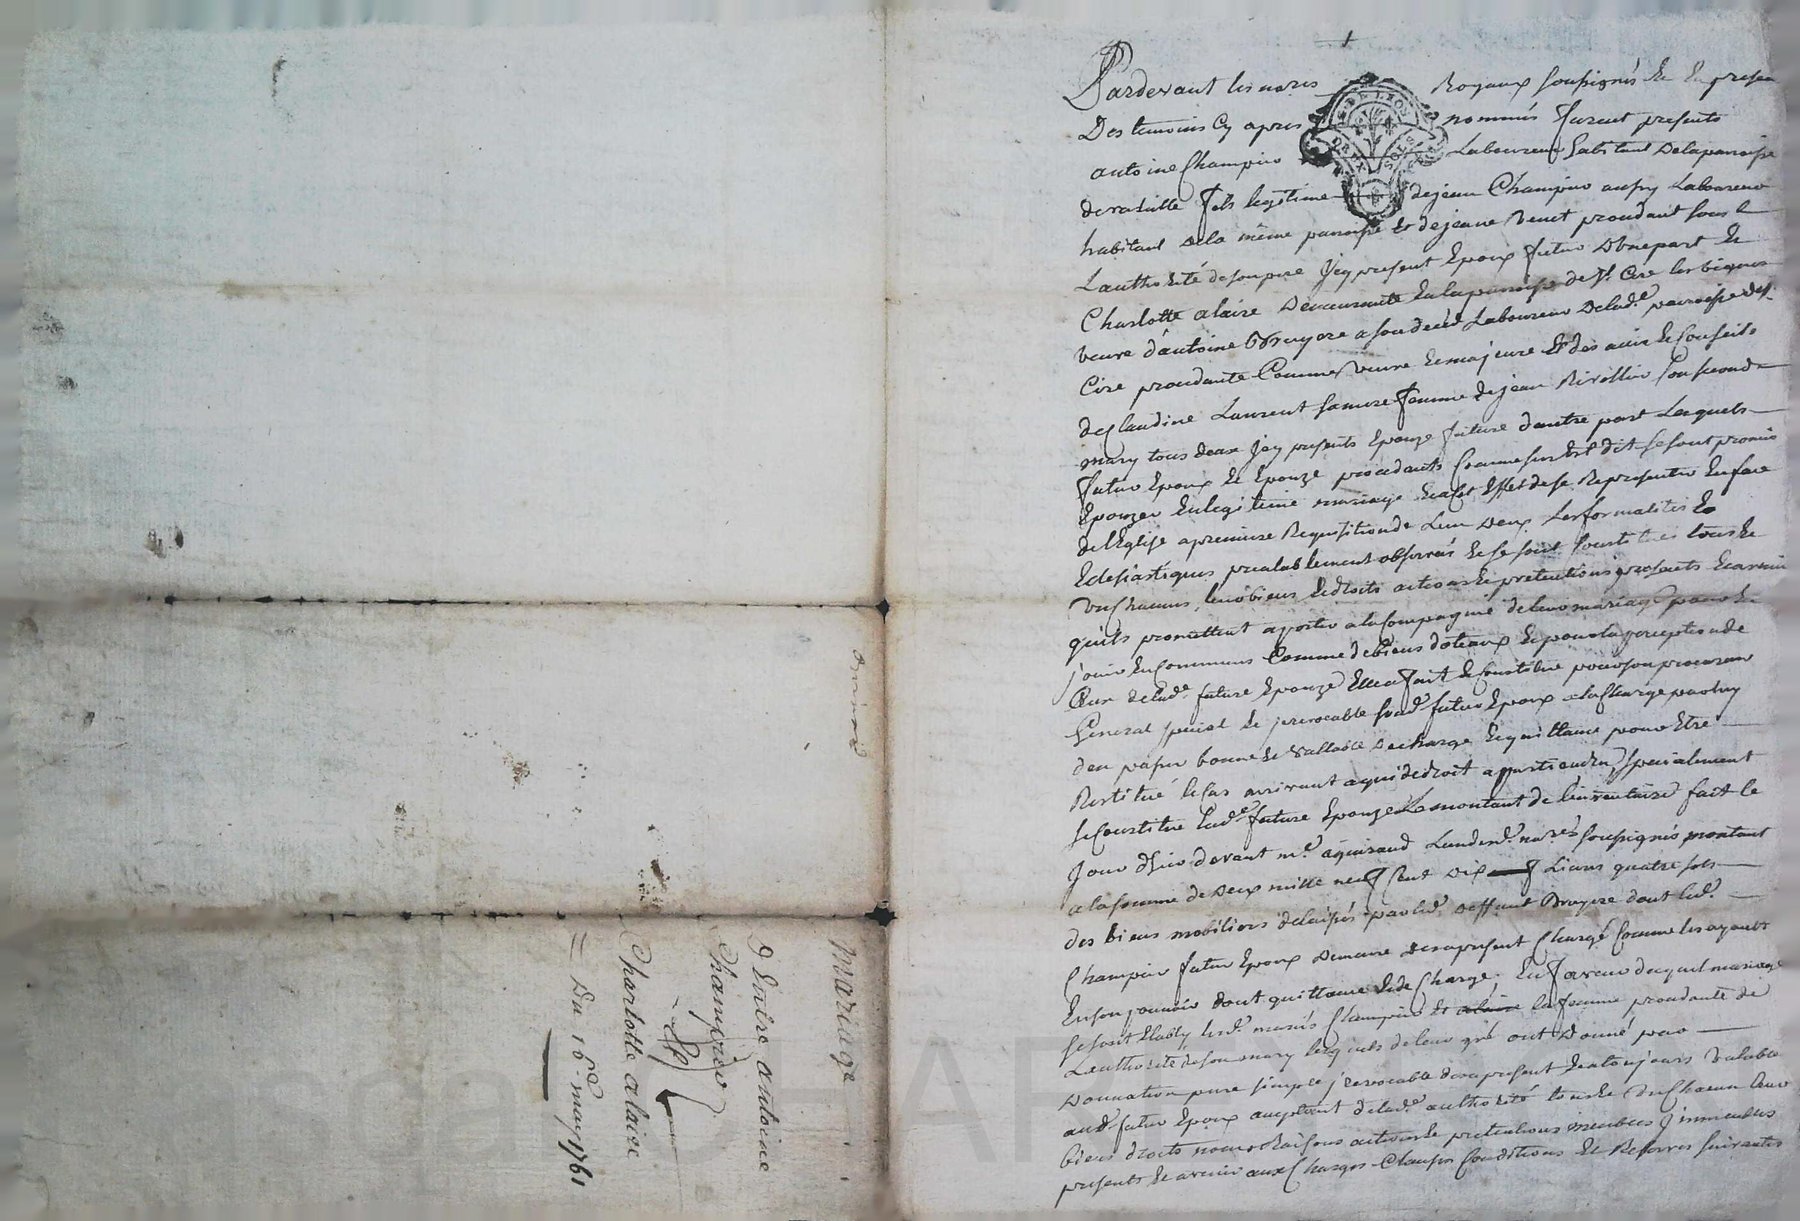 Mariage
D'Entre antoine
Champin
&
Charlotte alaire
= Du 16e may 1761
Pardevant les no.res Royaux soussignés Et En presen
Des temoins Cy apres nommés furent presents
antoine Champin Laboureur habitant Dela paroisse
fils legitime dejean Champin aussy Laboureur
habitant dela même paroisse Et dejeanne Benet procedant sous l
Lauthorité desonpere Jcy present Epoux futur D'Une part Et
Charlotte alaire Demeurante En la paroisse de St. Cire les vignes
veuve d'antoine Bruyere a son deces Laboureur Delad.e paroisse de St.
Cire procedante Comme Veuve Et majeure Et des avis Et Conseils
de Claudine Laurent sa mere femme de jean Rivollier son second
mary tous deux Jcy presents Epouze future d'autre part Lesquels
futur Epoux Et Epouze procedants Comme sus Est dit se sont promis
Epouzer En legitime mariage Et a cet Effet de se Representer En face
de l'Eglise a premiere Requisition de L'un Deux Les formalités
Eclesiastiques prealablement observées Et se sont Constitués tous Et
Un Chacuns leurs biens Et droits actions Et pretentions presents Et avenir
qu'ils promettent aporter a la Compagnie de leur mariage pour En
jouir En Commun Comme de biens doteaux Et pour la perception de
Ceux delad.e future Epouze Elle a fait Et Constitué pour son procureur
General special Et jrrevocable sond.t futur Epoux a la Charge par luy
d'en passer bonne Et vallable decharge Et quittance pour Etre
Restitué le Cas arrivant a qui de droit appartiendra, specialement
se Constitue lad.e future Epouze Le montant de linventaire fait le
Jour d'hier devant m.e L'un des no.res soussignés montant
a la somme de Deux mille neuf Cent dix Livres quatre sols
des biens mobiliers delaissés par led. Deffunt Bruyere dont led.
Champin futur Epoux Demeure Des apresent Chargé Comme les ayants
En son pouvoir dont quittance Et de Charge. En faveur duquel mariage
se sont Etably lesd. mariés Champin Et la femme procedante de
Lauthorité de son mary lesquels de leur gré ont Donné par
Donnation pure simple jrrevocable des apresent Et a toujours Valable
aud. futur Epoux acceptant delad.e authorité tous Et Un Chacun leurs
biens droits noms Raisons actions Et pretentions meubles Jmmeubles
presents Et avenir aux Charges Clauses Conditions Et Reserves suivantes